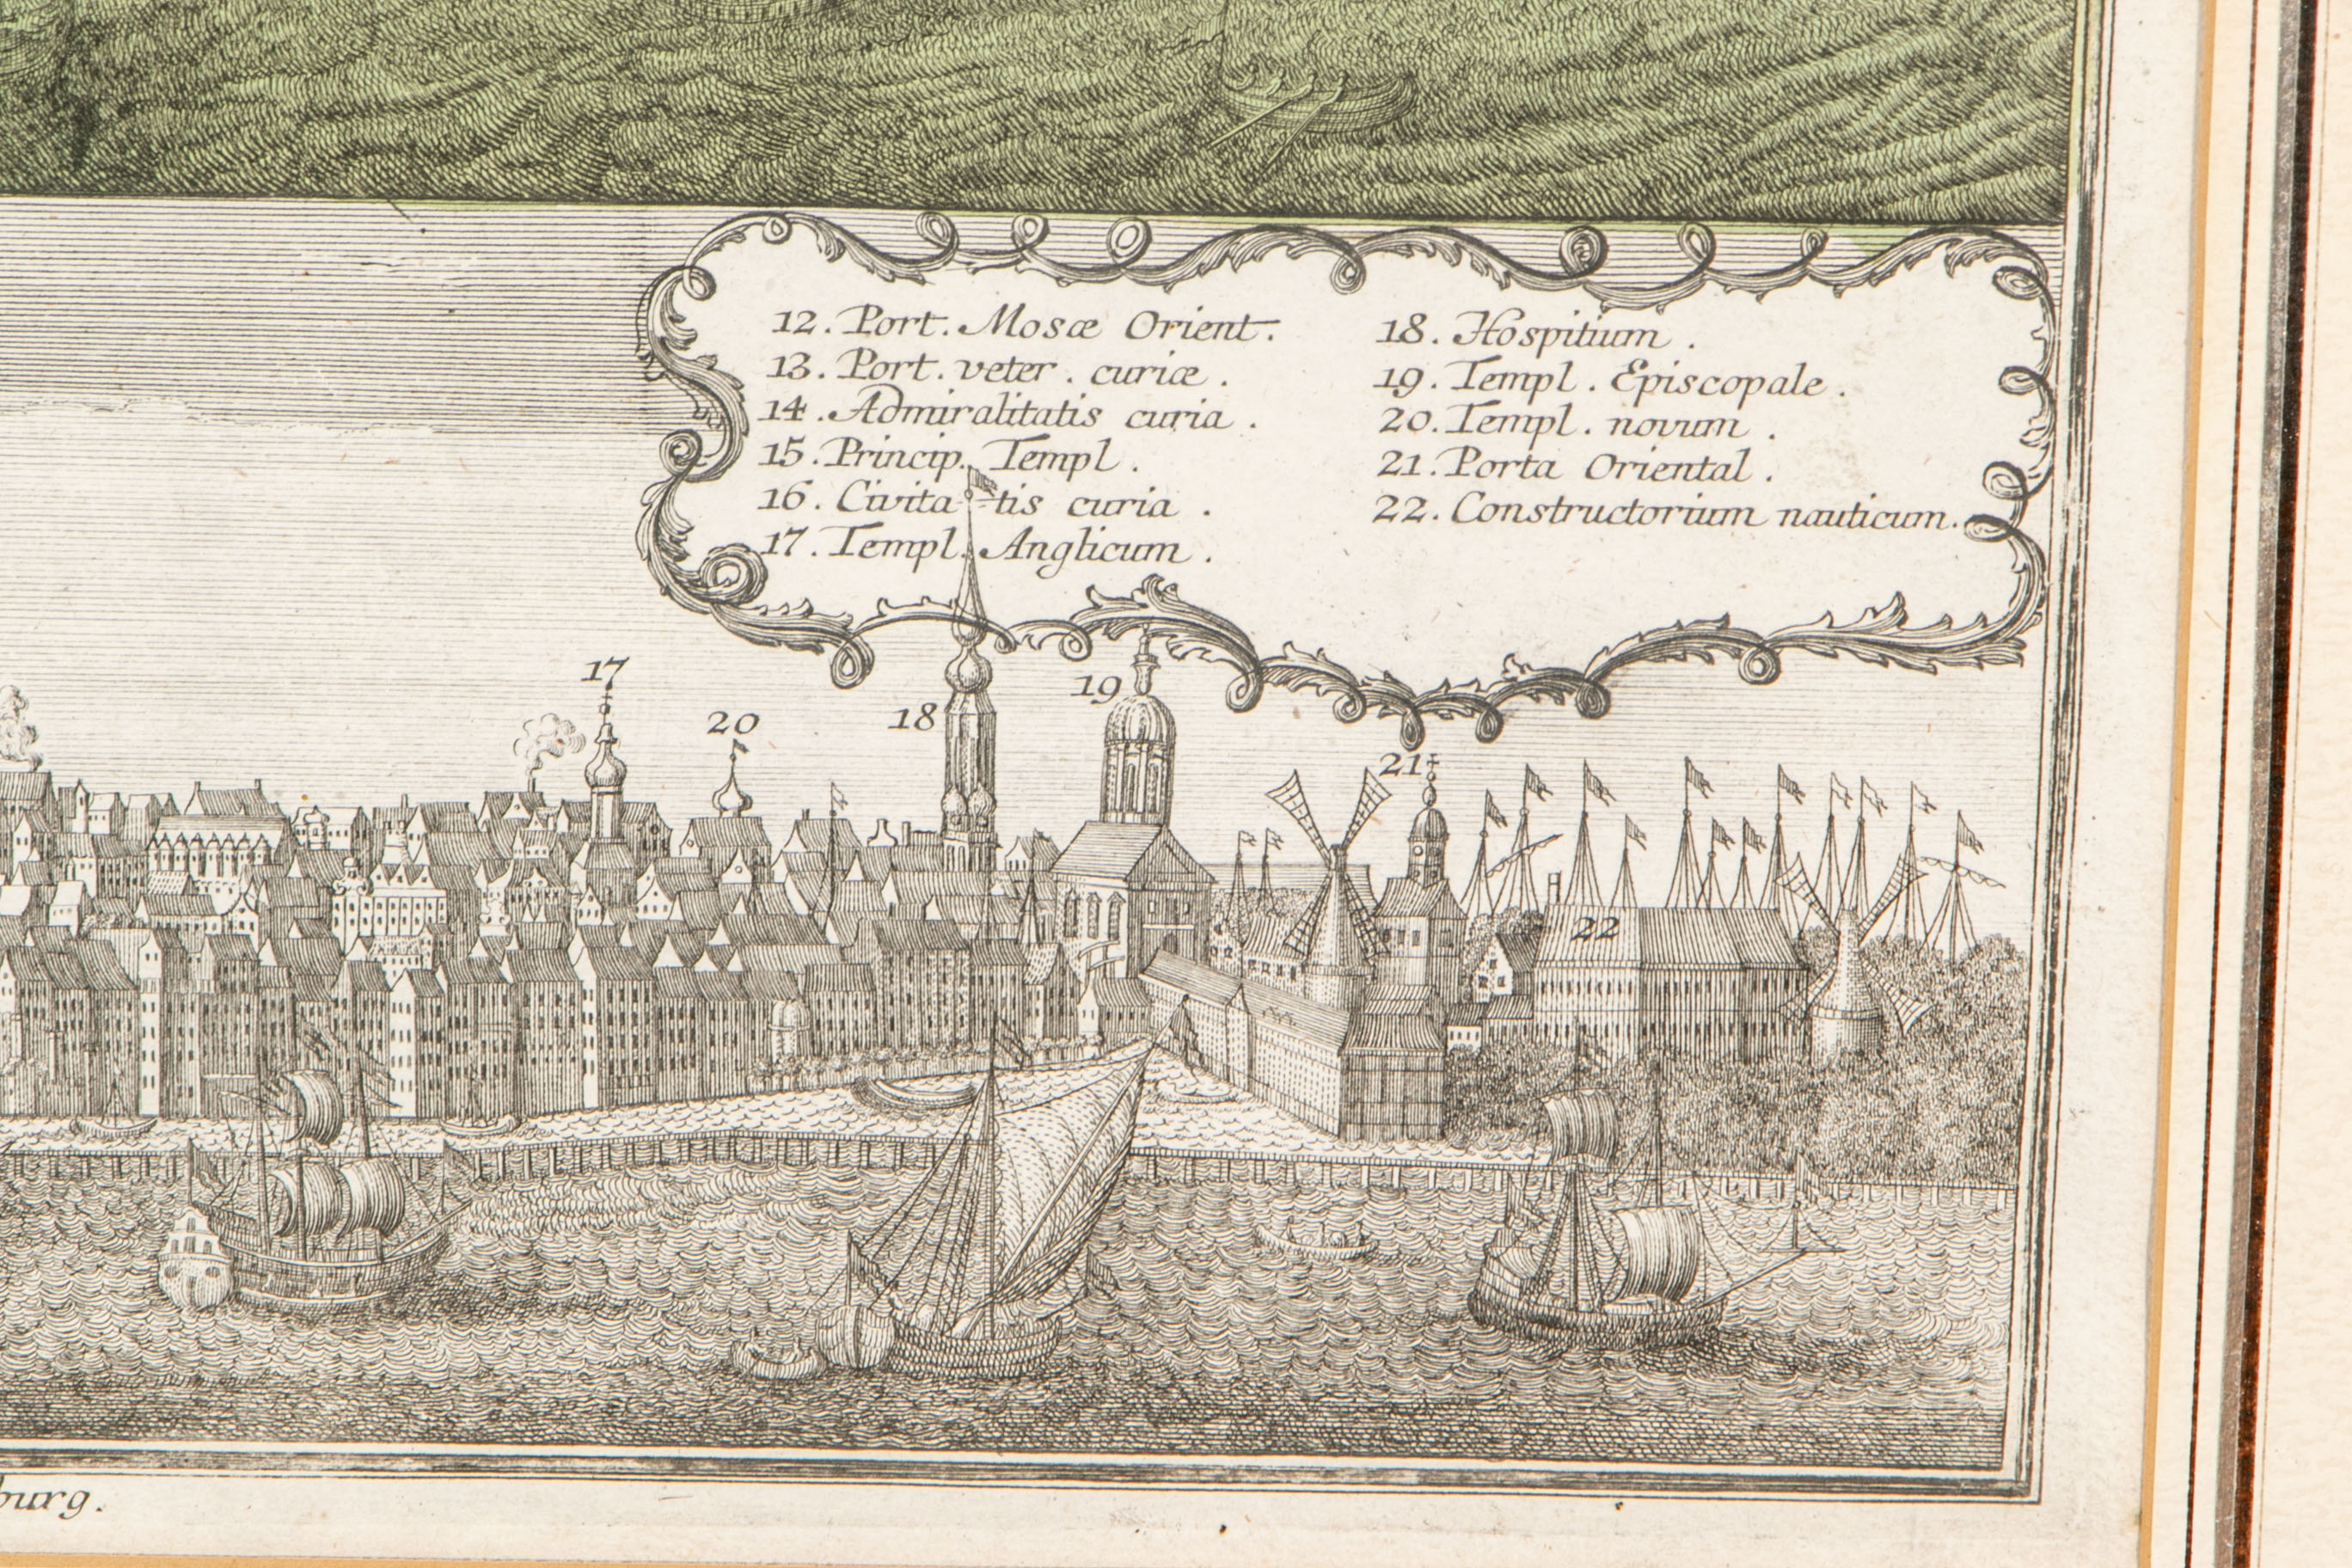 12. Port. Mosæ Orient.
13. Port. veter. curiæ.
14. Admiralitatis curia.
15. Princip. Templ.
16. Civitatis curia.
17. Templ. Anglicum.
18. Hospitium.
19. Templ. Episcopale.
20. Templ. novum.
21. Porta Oriental.
22. Constructorium nauticum.
17
20
18
19
21
22
burg.